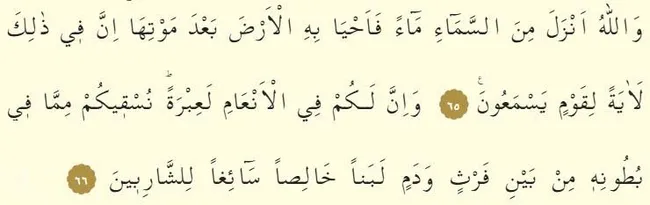 وَاللّٰهُ اَنْزَلَ مِنَ السَّمَٓاءِ مَٓاءً فَاَحْيَا بِهِ الْاَرْضَ بَعْدَ مَوْتِهَا اِنَّ ف۪ي ذٰلِكَ
لَاٰيَةً لِقَوْمٍ يَسْمَعُونَ۟ ٦٥ وَاِنَّ لَكُمْ فِي الْاَنْعَامِ لَعِبْرَةًۜ نُسْق۪يكُمْ مِمَّا ف۪ي
بُطُونِه۪ مِنْ بَيْنِ فَرْثٍ وَدَمٍ لَبَناً خَالِصاً سَٓائِغاً لِلشَّارِب۪ينَ ٦٦